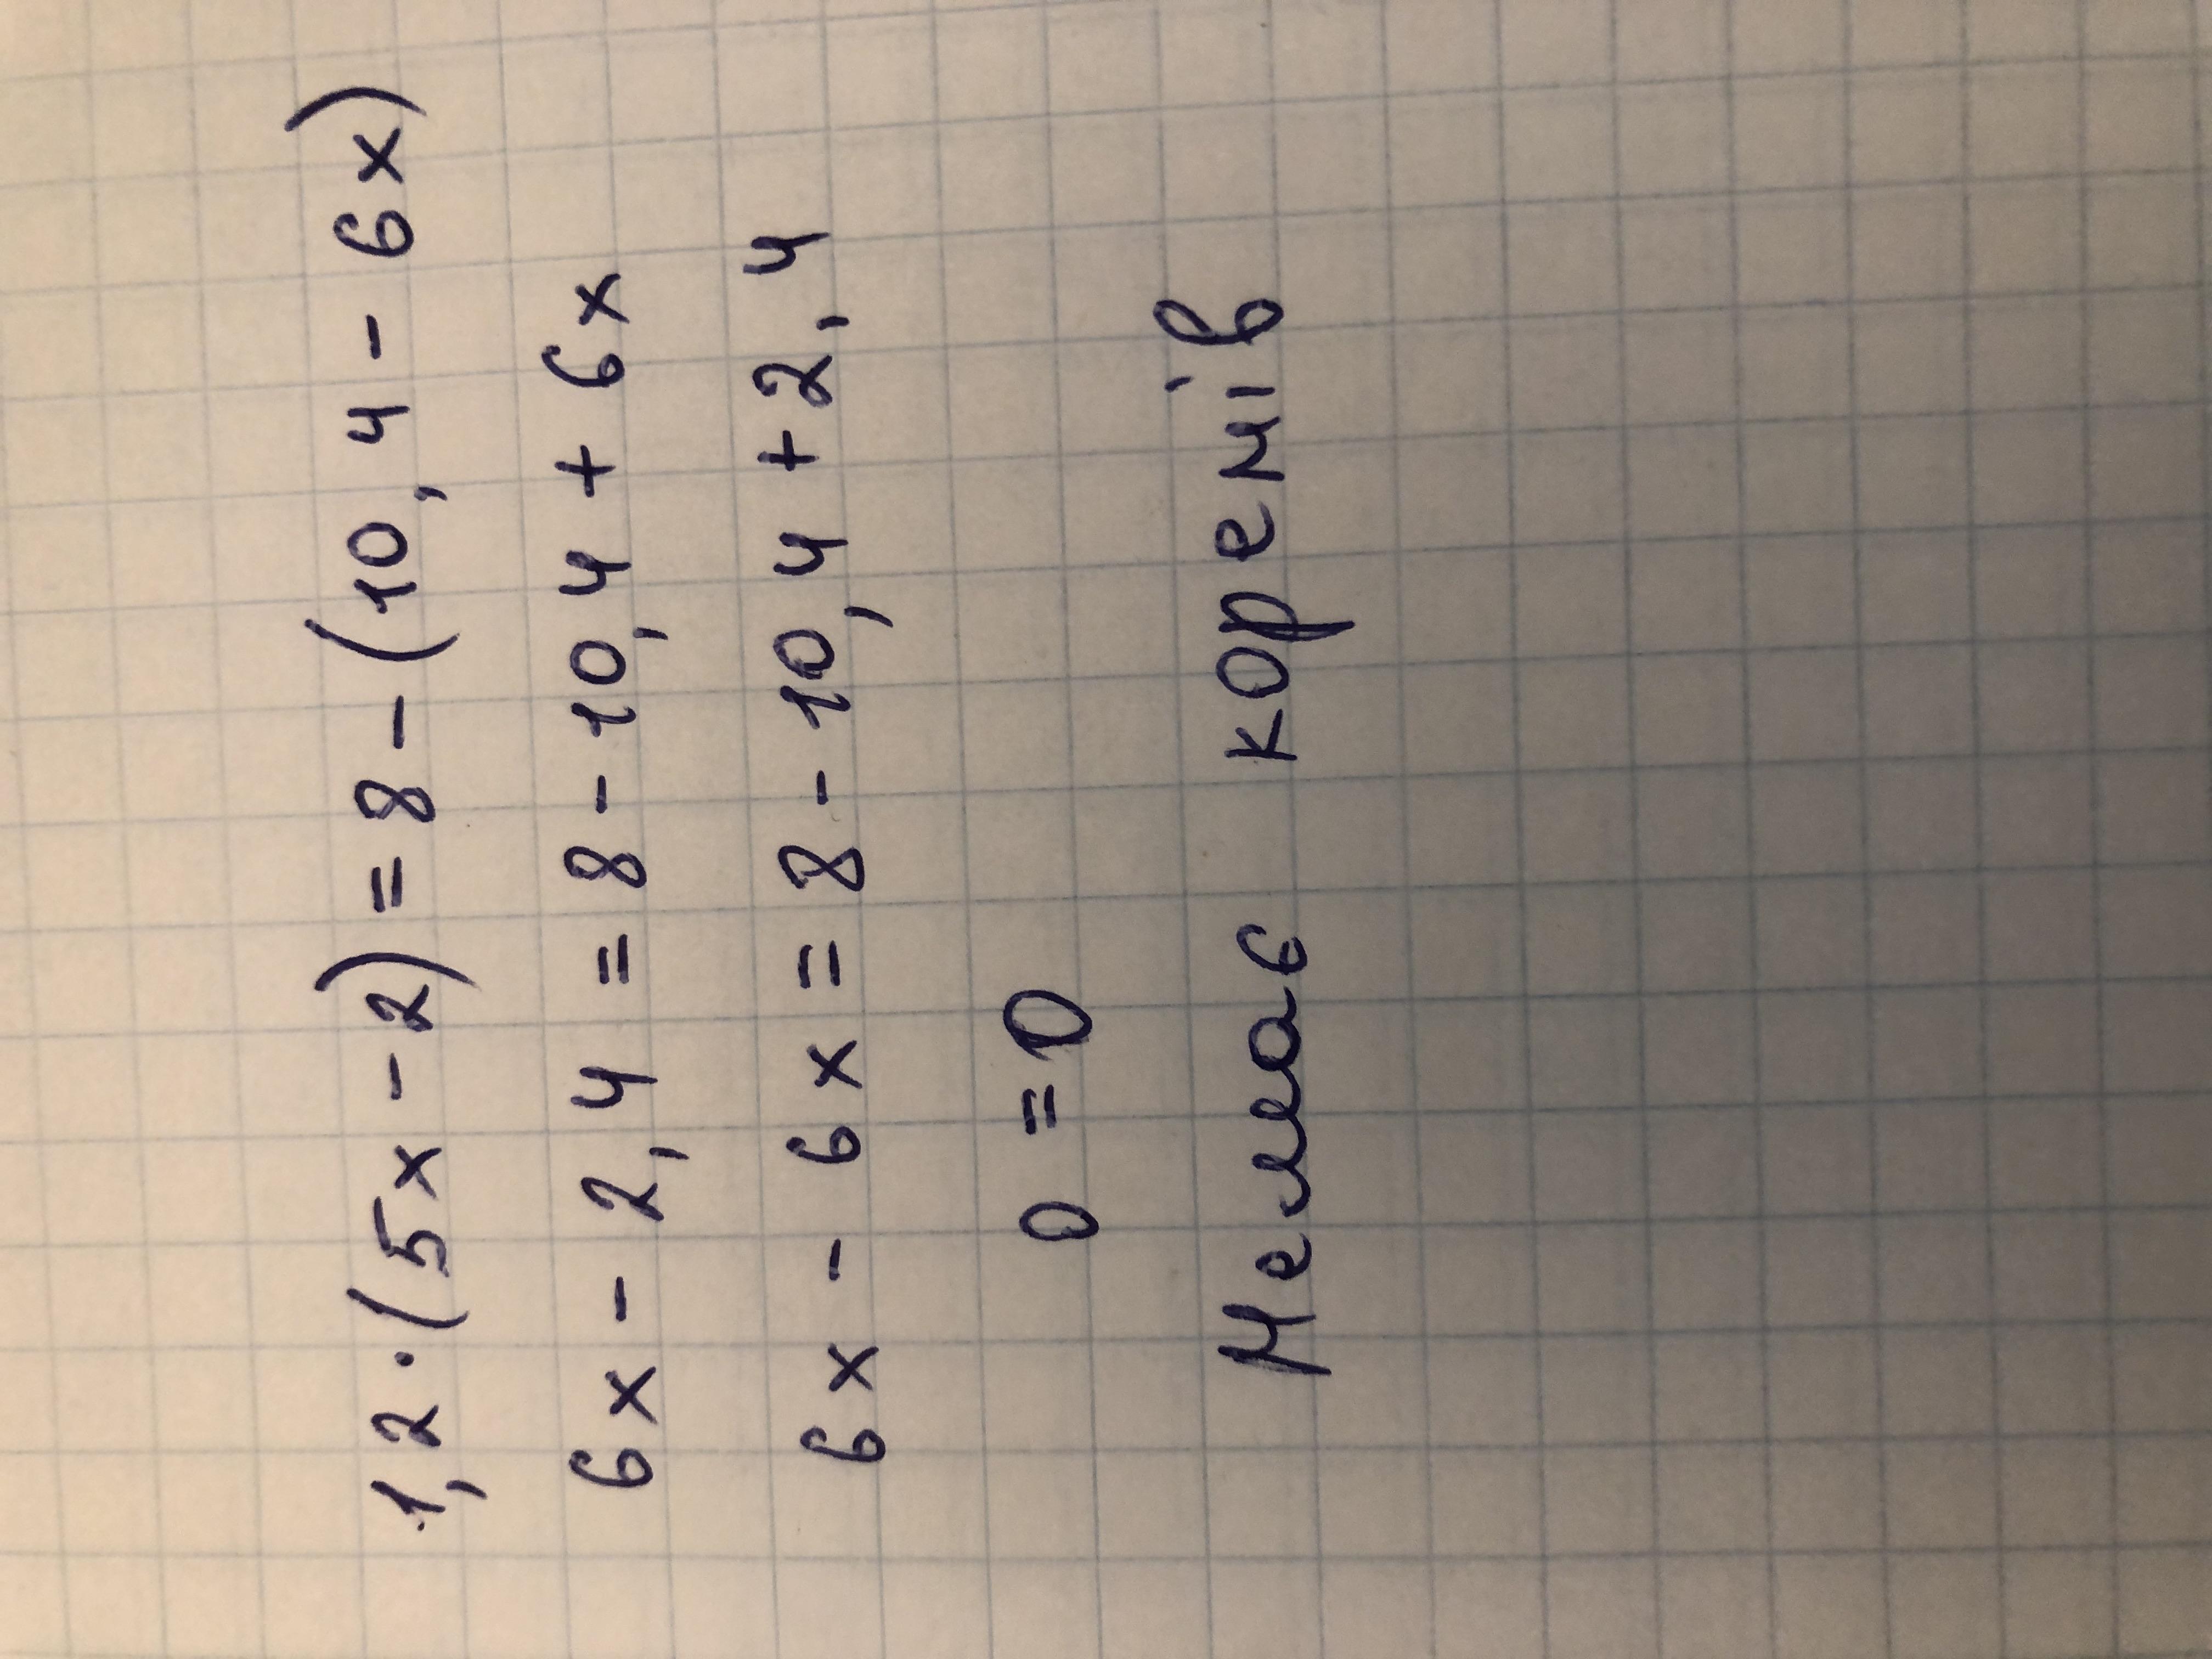 1,2·(5x-2)=8-(10,4-6x)
6x-2,4=8-10,4+6x
6x-6x=8-10,4+2,4
0=0
Немає коренів